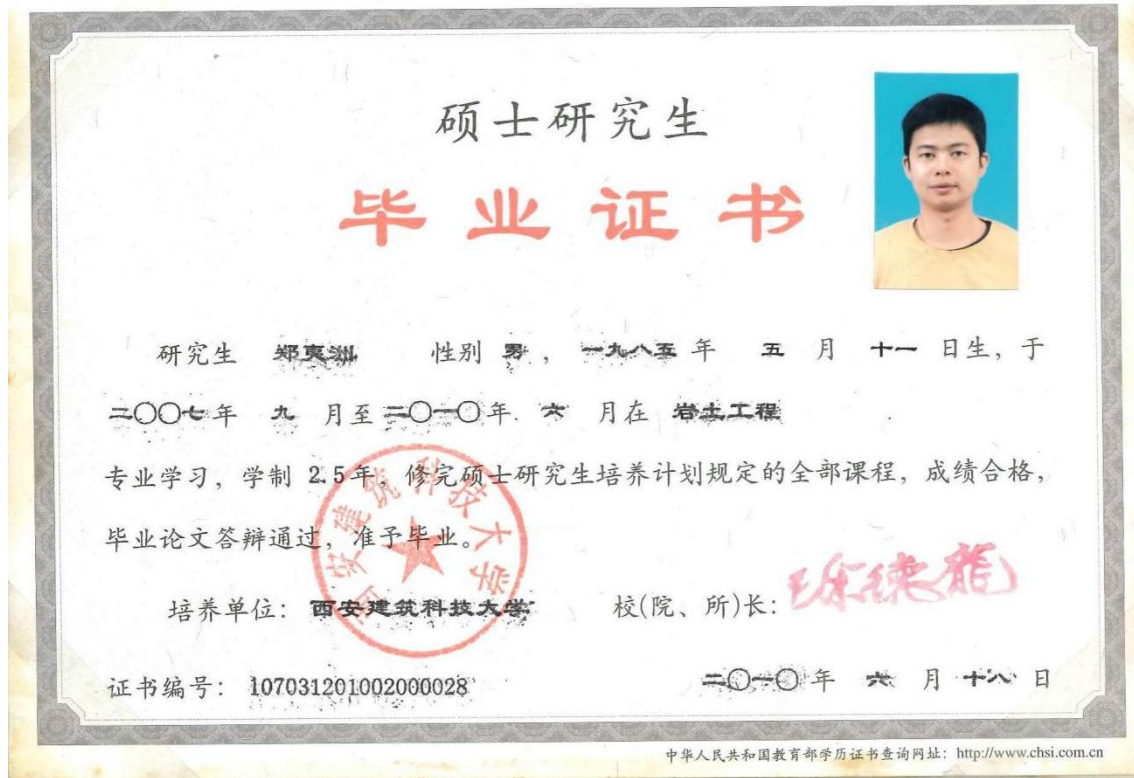 硕士研究生
毕业证书
研究生 郑夷洲 性别 男 , 一九八五 年 五 月 十一 日生, 于
二〇〇七 年 九 月至 二〇一〇 年 六 月在 岩土工程
专业学习, 学制 2.5 年, 修完硕士研究生培养计划规定的全部课程, 成绩合格,
毕业论文答辩通过, 准予毕业。
西安建筑科技大学
培养单位: 西安建筑科技大学 校(院、所)长: 徐德龙
证书编号: 107031201002000028 二〇一〇 年 六 月 十八 日
中华人民共和国教育部学历证书查询网址: http://www.chsi.com.cn